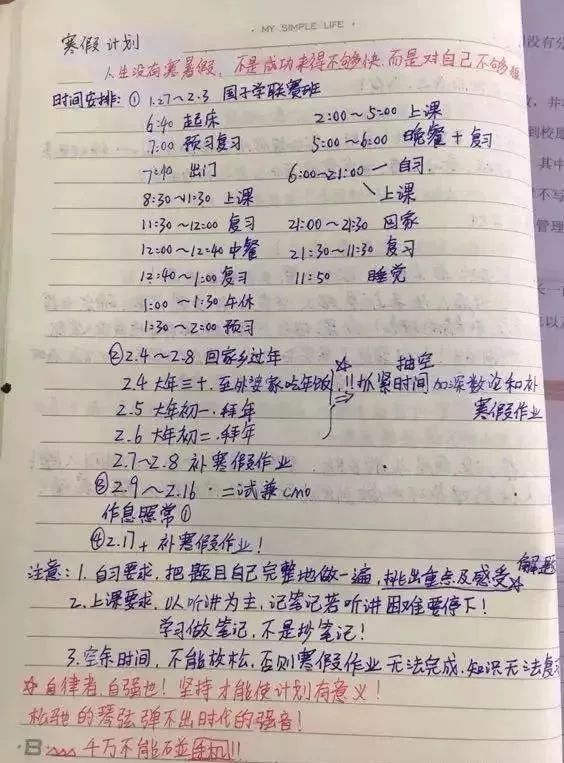 · MY SIMPLE LIFE ·
寒假计划
人生没有寒暑假，不是成功来得不够快，而是对自己不够狠
时间安排：① 1.27~2.3 国子学联赛班
6:40 起床 2:00~5:00 上课
7:00 预习复习 5:00~6:00 晚餐+复习
7:40 出门 6:00~21:00 一自习
8:30~11:30 上课 上课
11:30~12:00 复习 21:00~21:30 回家
12:00~12:40 中餐 21:30~11:30 复习
12:40~1:00 复习 11:50 睡觉
1:00~1:30 午休
1:30~2:00 预习
②2.4~2.8 回家乡过年 抽空
2.4 大年三十，至外婆家吃年饭，!! 抓紧时间加深数论和补
2.5 大年初一，拜年 寒假作业
2.6 大年初二，拜年
2.7~2.8 补寒假作业
③2.9~2.16 · 二试兼cmo
作息照常①
④2.17+ 补寒假作业！
注意：1. 自习要求，把题目自己完整地做一遍，挑出重点及感受 解题
2. 上课要求，以听讲为主，记笔记若听讲困难要停下！
学习做笔记，不是抄笔记！
3. 空余时间，不能放松，否则寒假作业无法完成，知识无法复
☆自律者，自强也！坚持才能使计划有意义！
松驰的琴弦弹不出时代的强音！
千万不能碰手机!!!
没有分
到校原
其中
不写
管理